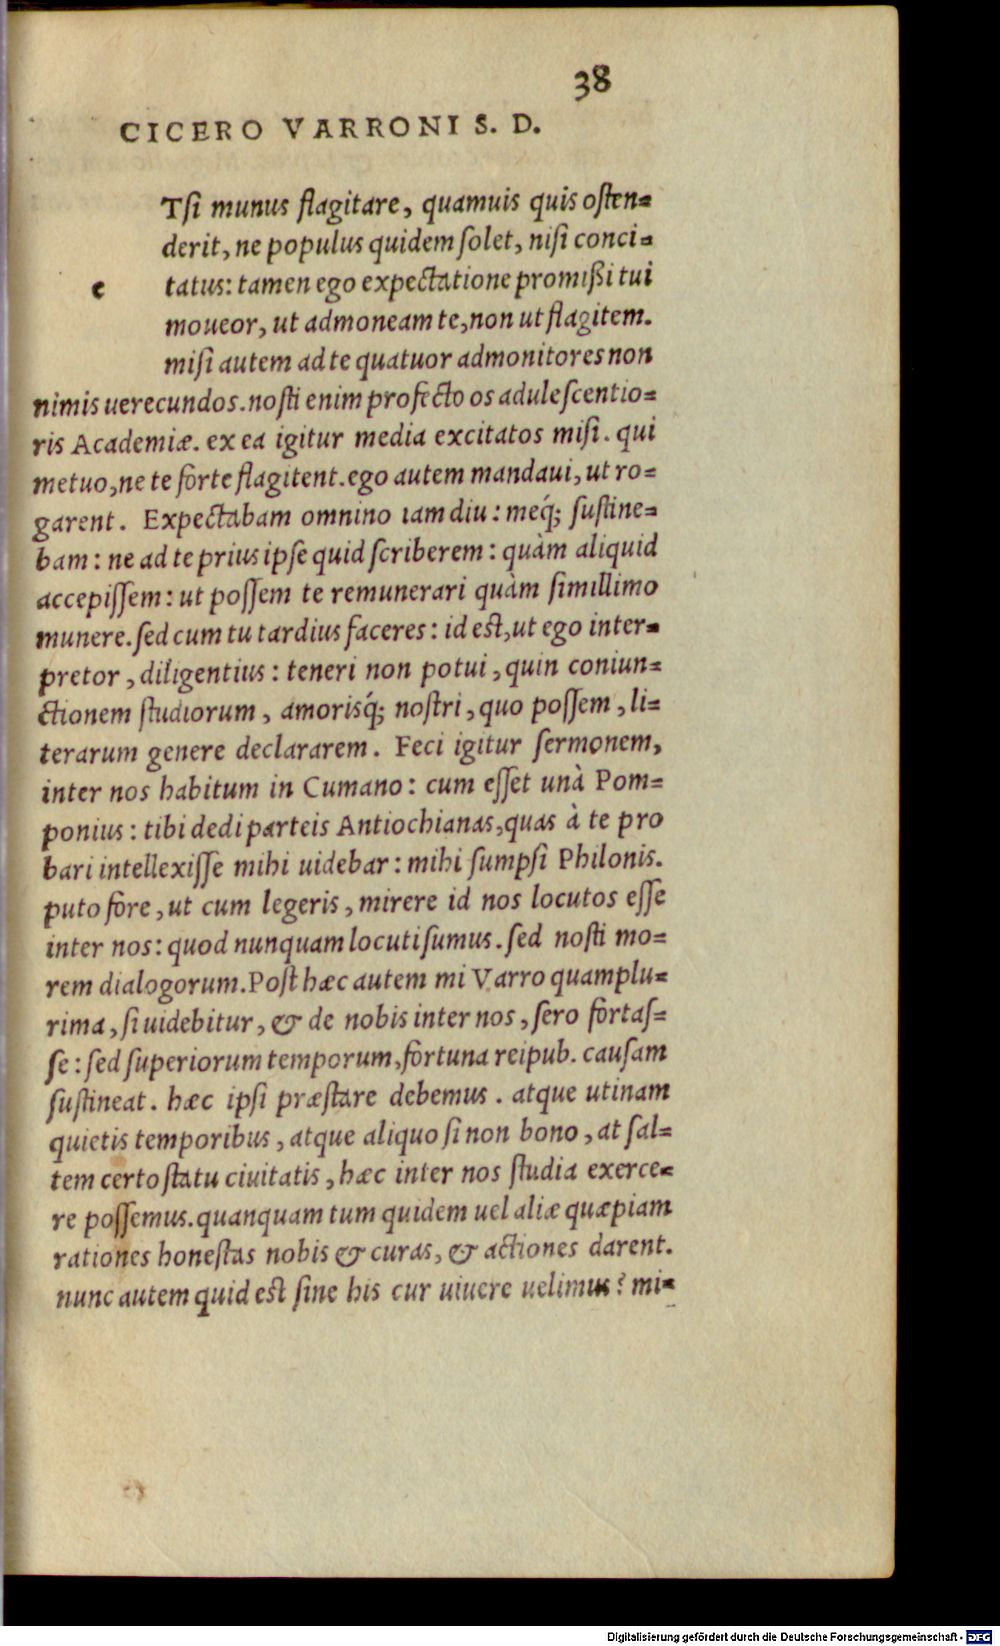 38
CICERO VARRONI S. D.
Tſi munus flagitare, quamuis quis oſten=
derit, ne populus quidem ſolet, niſi conci=
e tatus: tamen ego expectatione promißi tui
moueor, ut admoneam te, non ut flagitem.
miſi autem ad te quatuor admonitores non
nimis uerecundos. noſti enim profecto os aduleſcentio=
ris Academiæ. ex ea igitur media excitatos miſi. qui
metuo, ne te forte flagitent. ego autem mandaui, ut ro=
garent. Expectabam omnino iam diu: meq́; ſuſtine=
bam: ne ad te prius ipſe quid ſcriberem: quàm aliquid
accepiſſem: ut poſſem te remunerari quàm ſimillimo
munere. ſed cum tu tardius faceres: id eſt, ut ego inter=
pretor, diligentius: teneri non potui, quin coniun=
ctionem ſtudiorum, amorisq́; noſtri, quo poſſem, li=
terarum genere declararem. Feci igitur ſermonem,
inter nos habitum in Cumano: cum eſſet unà Pom=
ponius: tibi dedi parteis Antiochianas, quas à te pro
bari intellexiſſe mihi uidebar: mihi ſumpſi Philonis.
puto fore, ut cum legeris, mirere id nos locutos eſſe
inter nos: quod nunquam locuti ſumus. ſed noſti mo=
rem dialogorum. Poſt hæc autem mi Varro quamplu=
rima, ſi uidebitur, & de nobis inter nos, ſero fortaſ=
ſe: ſed ſuperiorum temporum, fortuna reipub. cauſam
ſuſtineat. hæc ipſi præſtare debemus. atque utinam
quietis temporibus, atque aliquo ſi non bono, at ſal=
tem certo ſtatu ciuitatis, hæc inter nos ſtudia exerce=
re poſſemus. quanquam tum quidem uel aliæ quæpiam
rationes honeſtas nobis & curas, & actiones darent.
nunc autem quid eſt ſine his cur uiuere uelimus? mi=
Digitalisierung gefördert durch die Deutsche Forschungsgemeinschaft - DFG